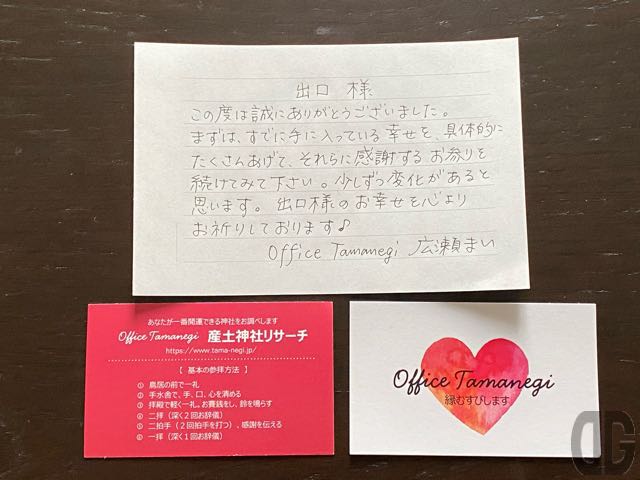 出口 様
この度は誠にありがとうございました。
まずは、すでに手に入っている幸せを、具体的に
たくさんあげて、それらに感謝するお参りを
続けてみて下さい。少しずつ変化があると
思います。出口様のお幸せを心より
お祈りしております♪
Office Tamanegi 広瀬まい
あなたが一番開運できる神社をお調べします
Office Tamanegi 産土神社リサーチ
https://www.tama-negi.jp/
【 基本の参拝方法 】
① 鳥居の前で一礼
② 手水舎で、手、口、心を清める
③ 拝殿で軽く一礼。お賽銭をし、鈴を鳴らす
④ 二拝（深く2回お辞儀）
⑤ 二拍手（2回拍手を打つ）、感謝を伝える
⑥ 一拝（深く1回お辞儀）
Office Tamanegi
縁むすびします
DG